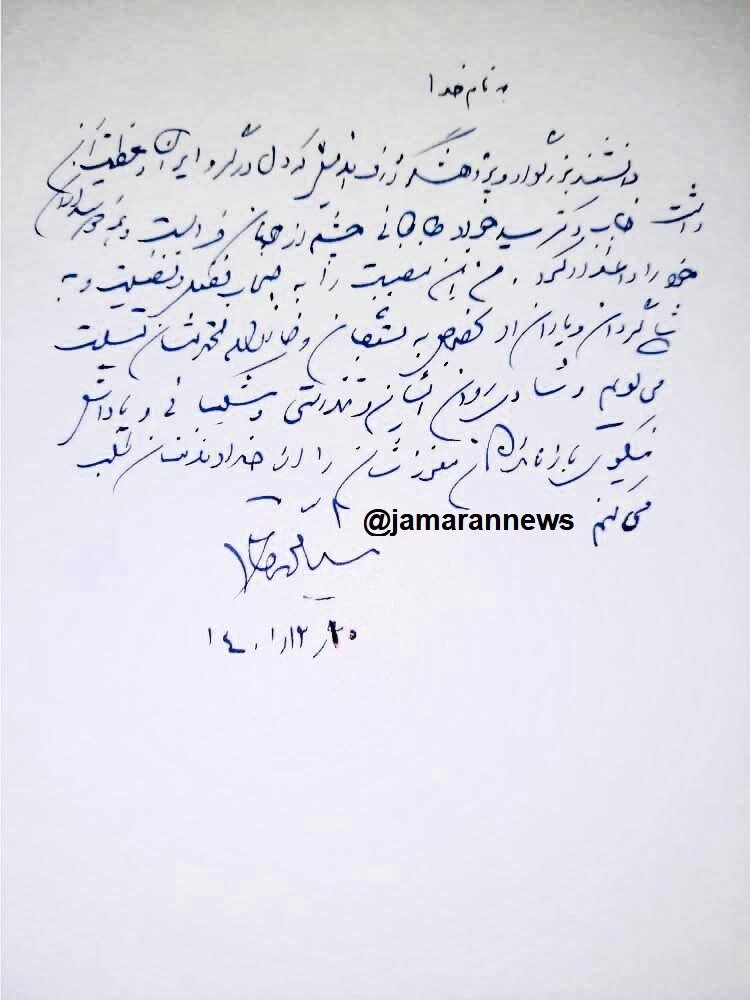 به نام خدا
دانشمند بزرگوار و پژوهشگر ژرف اندیش که دل در گرو ایران و عظمت آن
داشت جناب دکتر سید جواد طباطبائی چشم از جهان فروبست و همه دوستداران
خود را داغدار کرد. من این مصیبت را به اصحاب تفکر و فضیلت و به
شاگردان و یاران او بخصوص به بستگان و خانواده محترمشان تسلیت
می‌گویم و شادی روان ایشان و تندرستی و شکیبائی و پاداش
نیکوی بازماندگان معززشان را از خداوند منان طلب
می‌کنم
@jamarannews
سید محمد خاتمی
۱۴۰۱/۱۲/۲۰